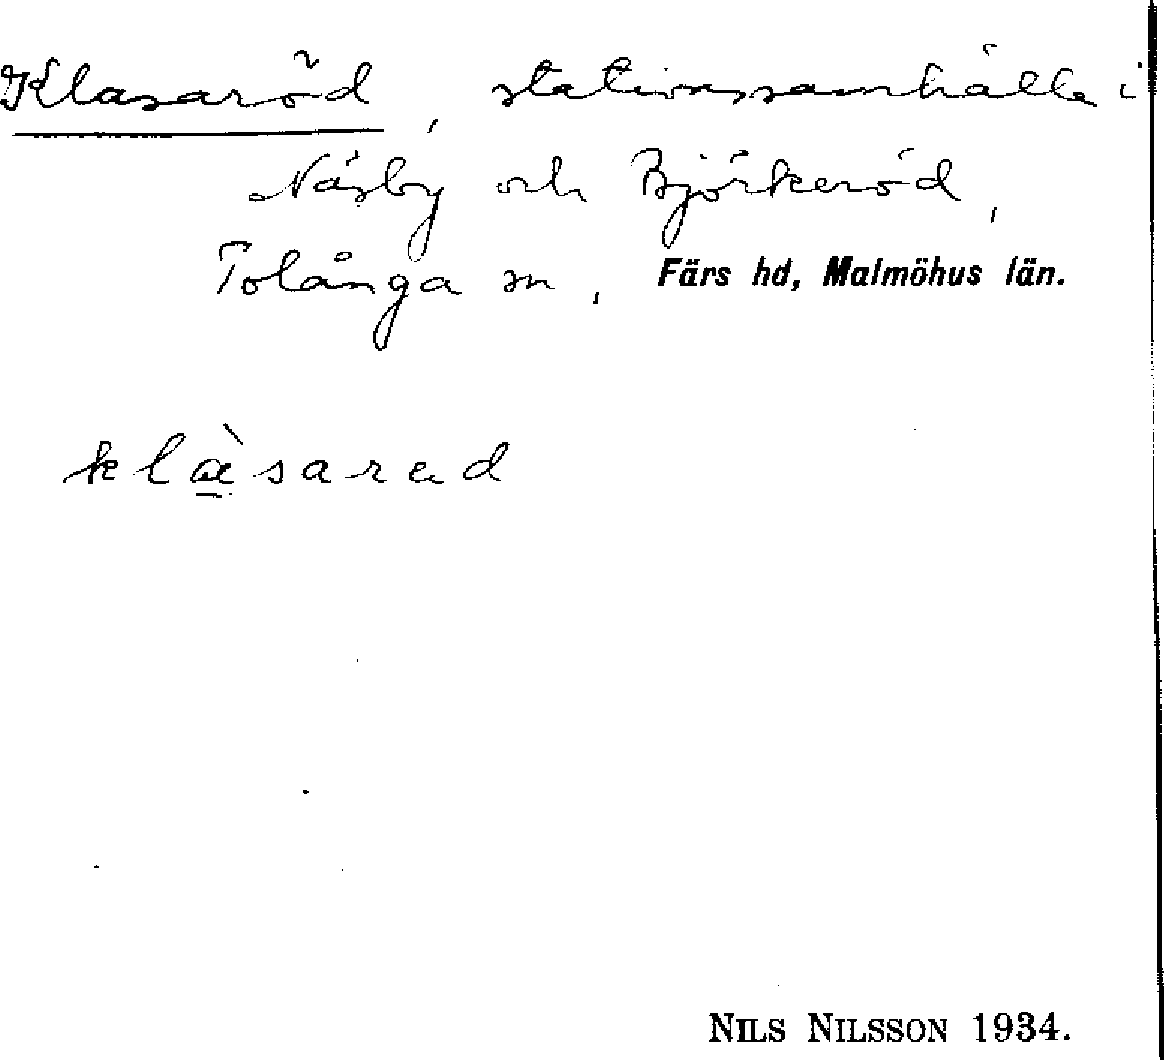 Klasaröd, stationssamhälle i
Näsby och Björkeröd,
Tolånga sn, Färs hd, Malmöhus län.
klɑ̱̀sarad
NILS NILSSON 1934.